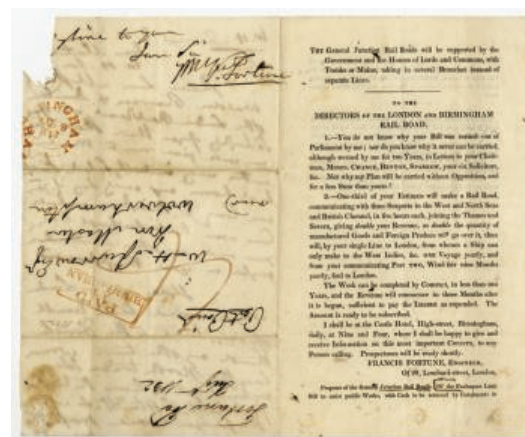 time to you
I am Sir
Fortune
PAID
Wolverhampton
Fortune
1832
THE General Junction Rail Roads will be supported by the
Government and the Houses of Lords and Commons, with
Trunks or Mains, taking in several Branches instead of
separate Lines.
TO THE
DIRECTORS OF THE LONDON AND BIRMINGHAM
RAIL ROAD.
1.—You do not know why your Bill was turned out of
Parliament by me; nor do you know why it never can be carried,
although warned by me for two Years, in Letters to your Chair-
men, Messrs. CHANCE, your six Solicitors,
&c. Nor why my Plan will be carried without Opposition, and
for a less Sum than yours!
2.—One-third of your Estimate will make a Rail Road,
communicating with three Seaports to the West and North Seas
and British Channel, in few hours each, joining the Thames and
Severn, giving double your Revenue, as double the quantity of
manufactured Goods and Foreign Produce will go over it, than
will, by your single Line to London, from whence a Ship can
only make to the West Indies, &c. one Voyage yearly, and
from your communicating Port two, Wind for nine Months
yearly, foul to London.
The Work can be completed by Contract, in less than two
Years, and the Revenue will commence in three Months after
it is begun, sufficient to pay the Interest as expended. The
Amount is ready to be subscribed.
I shall be at the Castle Hotel, High-street, Birmingham,
daily, at Nine and Four, where I shall be happy to give and
receive Information on this most important Concern, to any
Person calling. Prospectuses will be ready shortly.
FRANCIS FORTUNE, ENGINEER,
Of Lombard-street, London.
Rail Roads
Bill to assist public Works, with Cash to be returned by Instalments